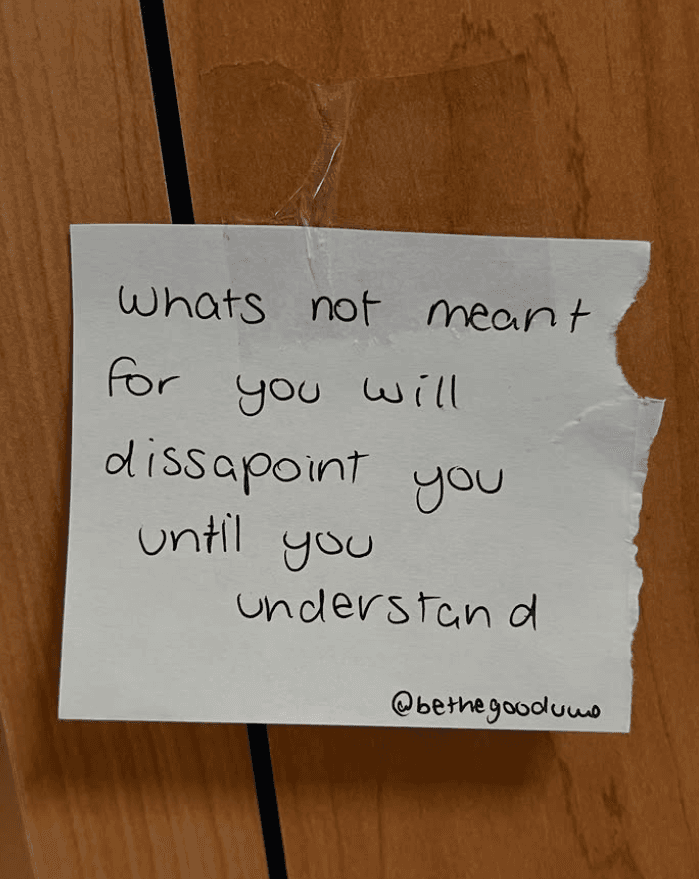 whats not meant
for you will
dissapoint you
until you
understand
@bethegooduwo